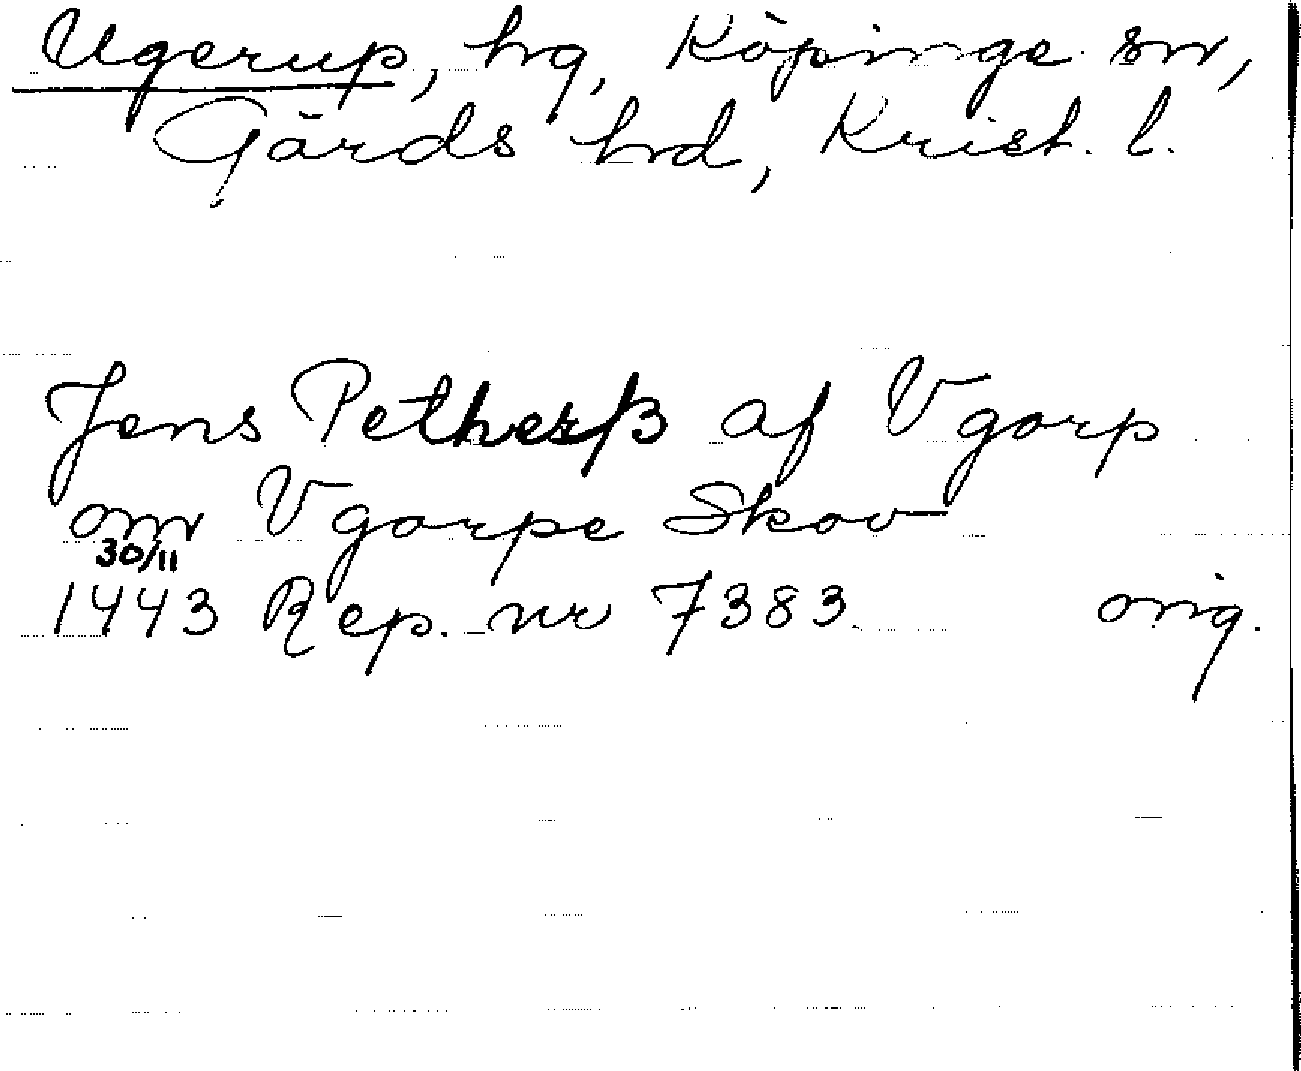 Ugerup, hg, Köpinge sn,
Gärds hrd, Krist. l.
Jens Petherß af Vgorp
om Vgorpe Skov
30/11
1443 Rep. nr 7383. orig.